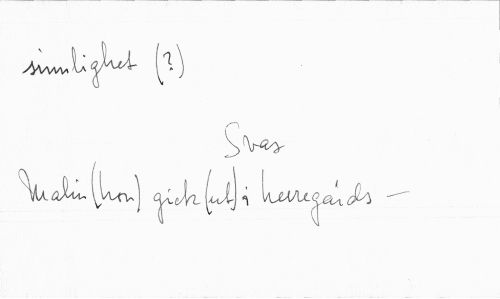 sinnlighet (?)
Svas
Malin (hon) gick (ut) i herregårds —